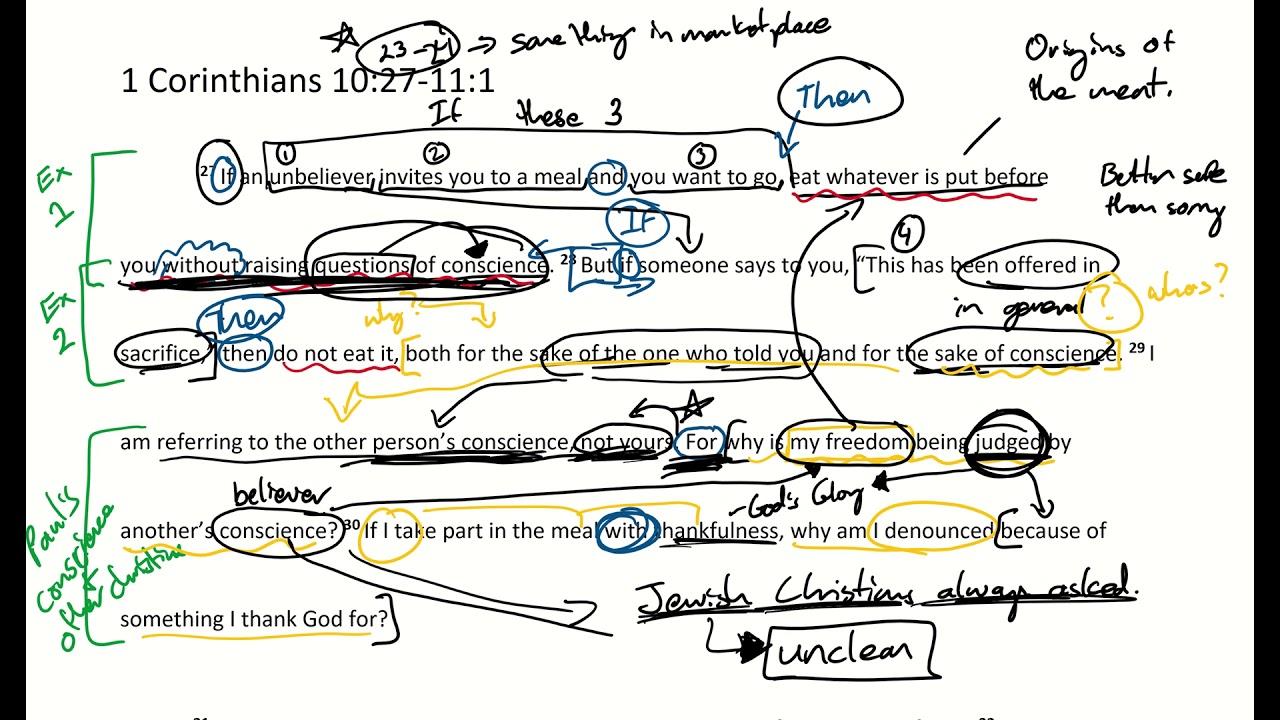 ☆ 23 - → something in marketplace
Origins of
the meat.
1 Corinthians 10:27-11:1
Then
If these 3
① ② ③
Ex
1
27 If an unbeliever invites you to a meal and you want to go, eat whatever is put before
Better safe
than sorry
If
④
you without raising questions of conscience. 28 But if someone says to you, “This has been offered in
Ex
2
Then
why?
in general
?
whos?
sacrifice,” then do not eat it, both for the sake of the one who told you and for the sake of conscience. 29 I
☆
am referring to the other person’s conscience, not yours. For why is my freedom being judged by
believer
-God's Glory
Paul's
conscience
+
other christian
another’s conscience? 30 If I take part in the meal with thankfulness, why am I denounced because of
Jewish Christians always asked.
something I thank God for?
unclean